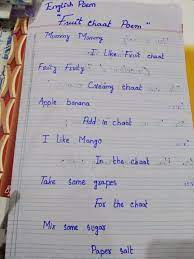 English Poem
"Fruit chaat Poem"
Mummy Mummy
I Like Fruit chaat
Fruity Fruity
Creamy chaat
Apple banana
Add in chaat
I like Mango
In the chaat
Take some grapes
For the chaat
Mix some sugar
Paper salt